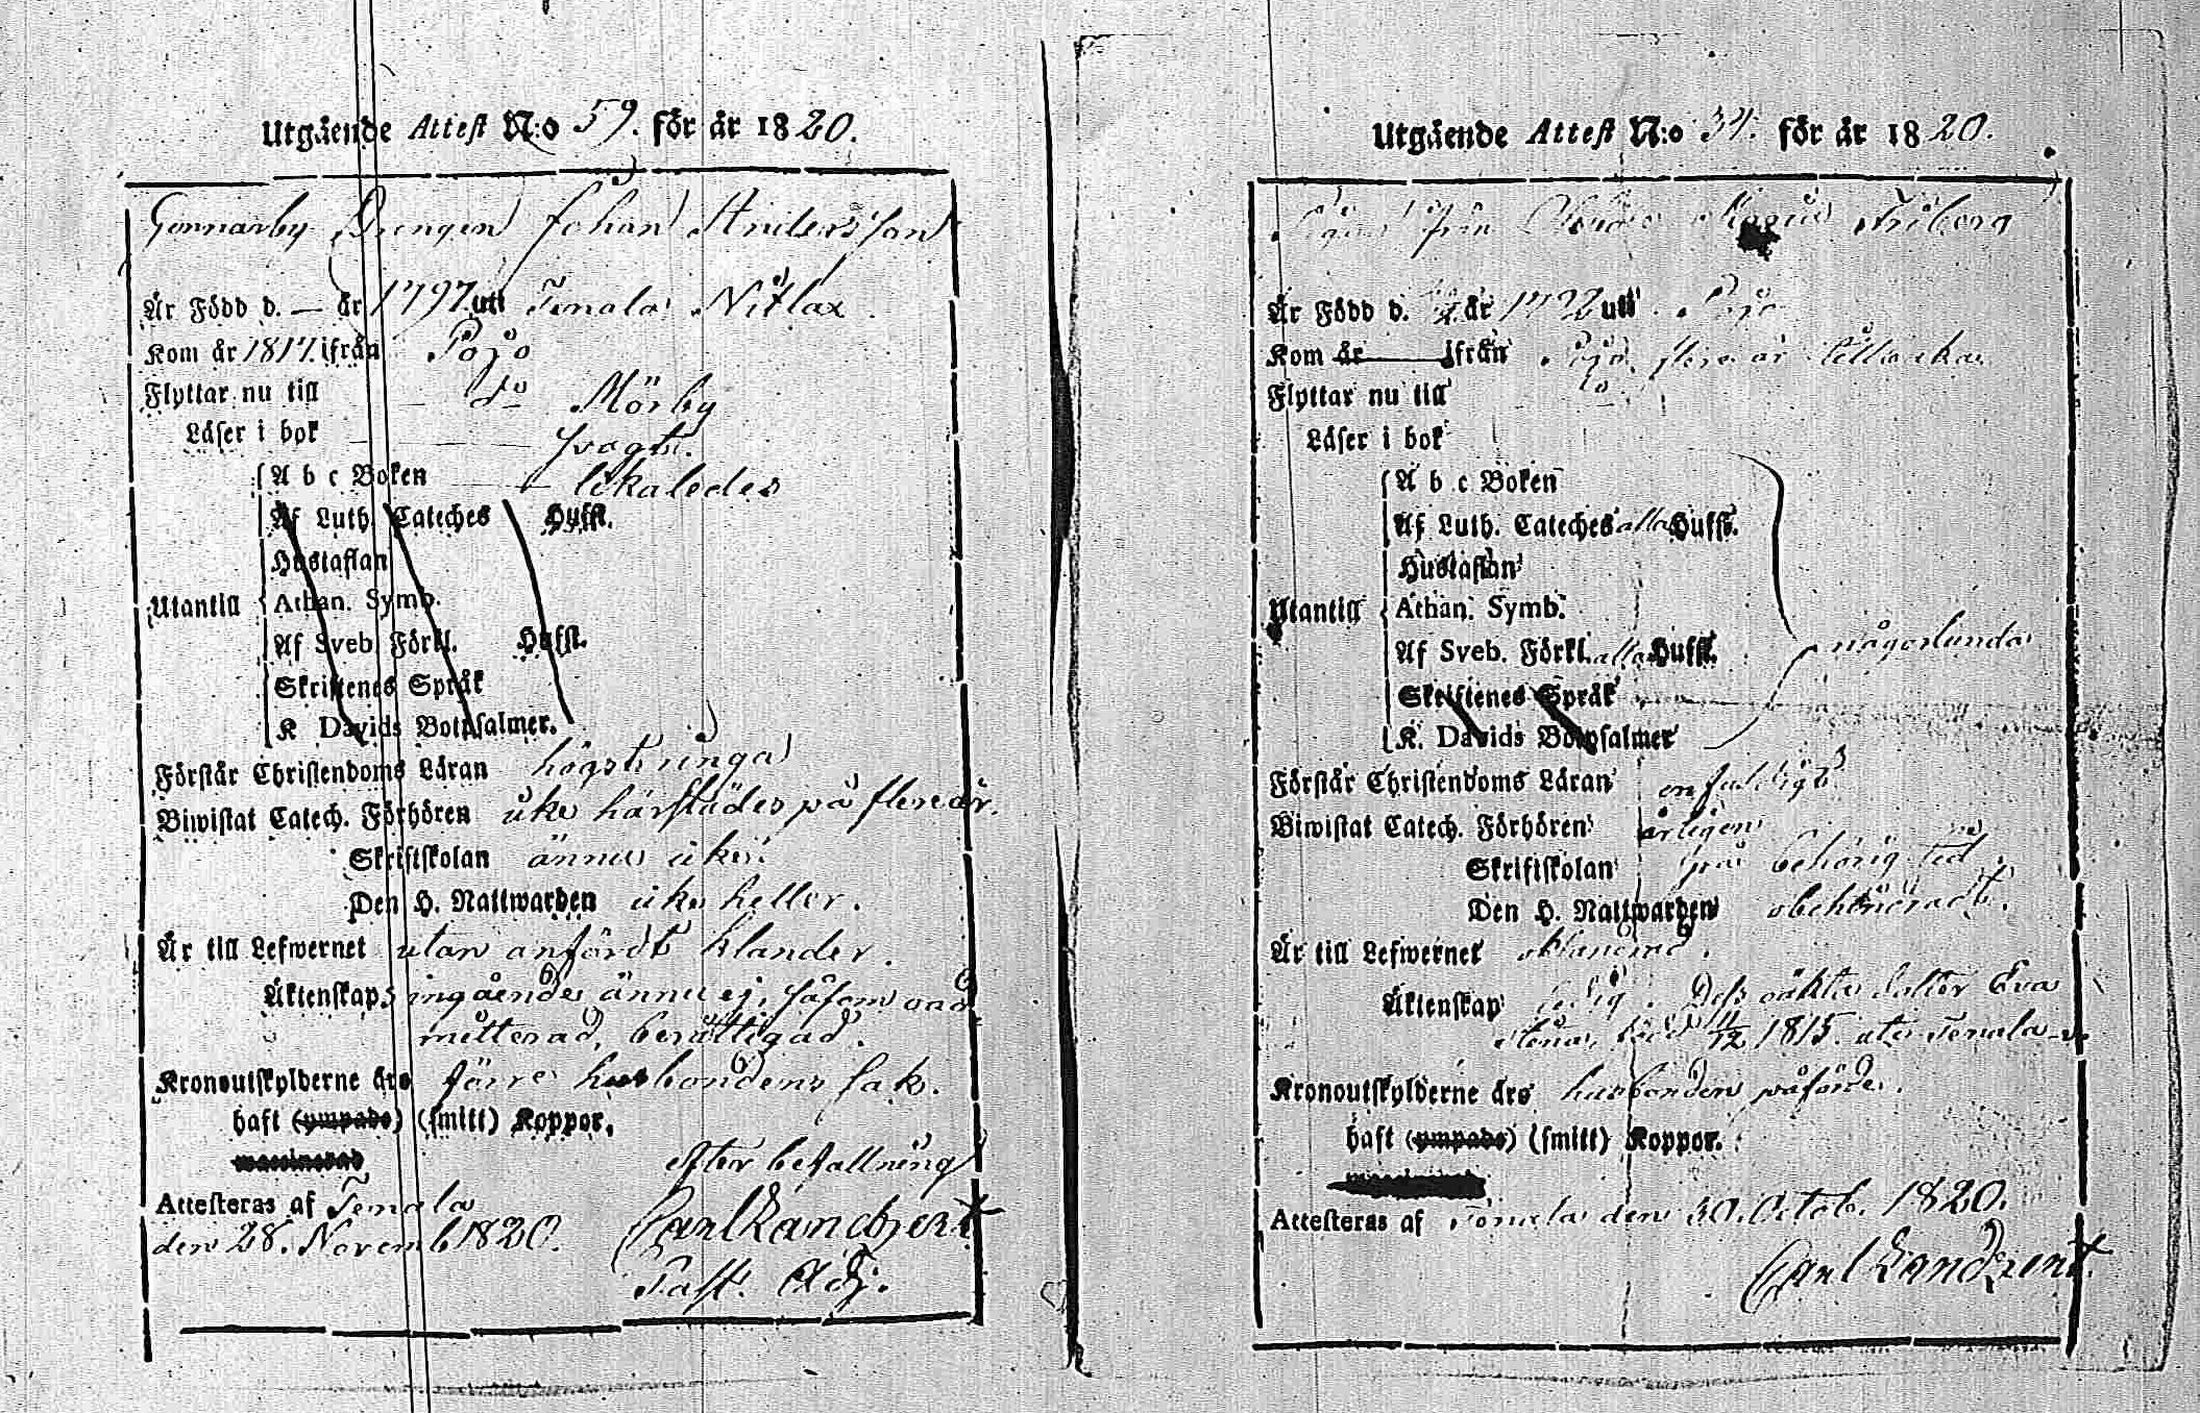 Utgående Attest N:o 59. för år 1820.
Gennarby Drengen Johan Andersson
Är Född d. — år 1797. uti Tenala Nitlax
Kom år 1817. ifrån Pojo
Flyttar nu till do Mörby
Läser i bok svagt.
A b c Boken likaledes
Af Luth. Cateches Hufst.
Hustaflan
Utantill Athan. Symb.
Af Sveb. Förkl. Hufst.
Skriftenes Språk
K Davids Botpsalmer.
Förstår Christendoms Läran högst ringa
Biwistat Catech. Förhören icke härstädes på flere år.
Skriftskolan ännu icke.
Den H. Nattwarden icke heller.
Är till Lefwernet utan anfördt klander.
Äktenskaps ingående ännu ej, såsom oad
mitterad, berättigad.
Kronoutskylderne äro förre husbondens sak.
haft (ympade) (smitt) Koppor.
waccinerad
efter befallning
Attesteras af Tenala
den 28. Novemb 1820. Carl Landzent
Past. Adj.
Utgående Attest N:o 34. för år 1820.
Pigan från Maria Friberg
Är Född d. år uti Pojo
Kom år ifrån Pojo flere år tillbaka
Flyttar nu till do
Läser i bok
A b c Boken
Af Luth. Cateches alla Hufst.
Hustaflan
Utantill Athan. Symb.
Af Sveb. Förkl. alla Hufst. någorlunda
Skriftenes Språk
K. Davids Botpsalmer
Förstår Christendoms Läran enfaldigt
Biwistat Catech. Förhören årligen
Skriftskolan på behörig tid.
Den H. Nattwarden obehindradt.
Är till Lefwernet oklandrad.
Äktenskap ledig. Dess oäkta dotter Eva
Stina, född 11/12 1815. uti Tenala
Kronoutskylderne äro husbonden påförde.
haft (ympade) (smitt) Koppor.
Attesteras af Tenala den 30. Octob. 1820.
Carl Landzent